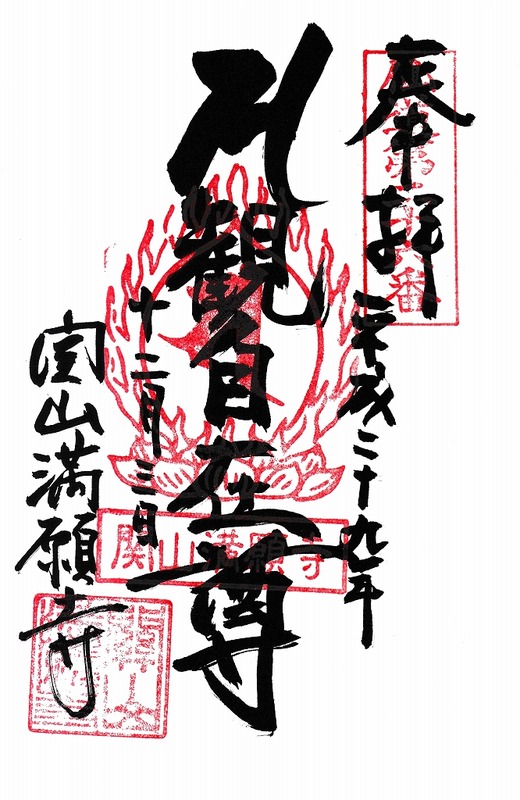 奉拝
平成二十九年
観自在尊
十二月三日
関山満願寺
関山満願寺